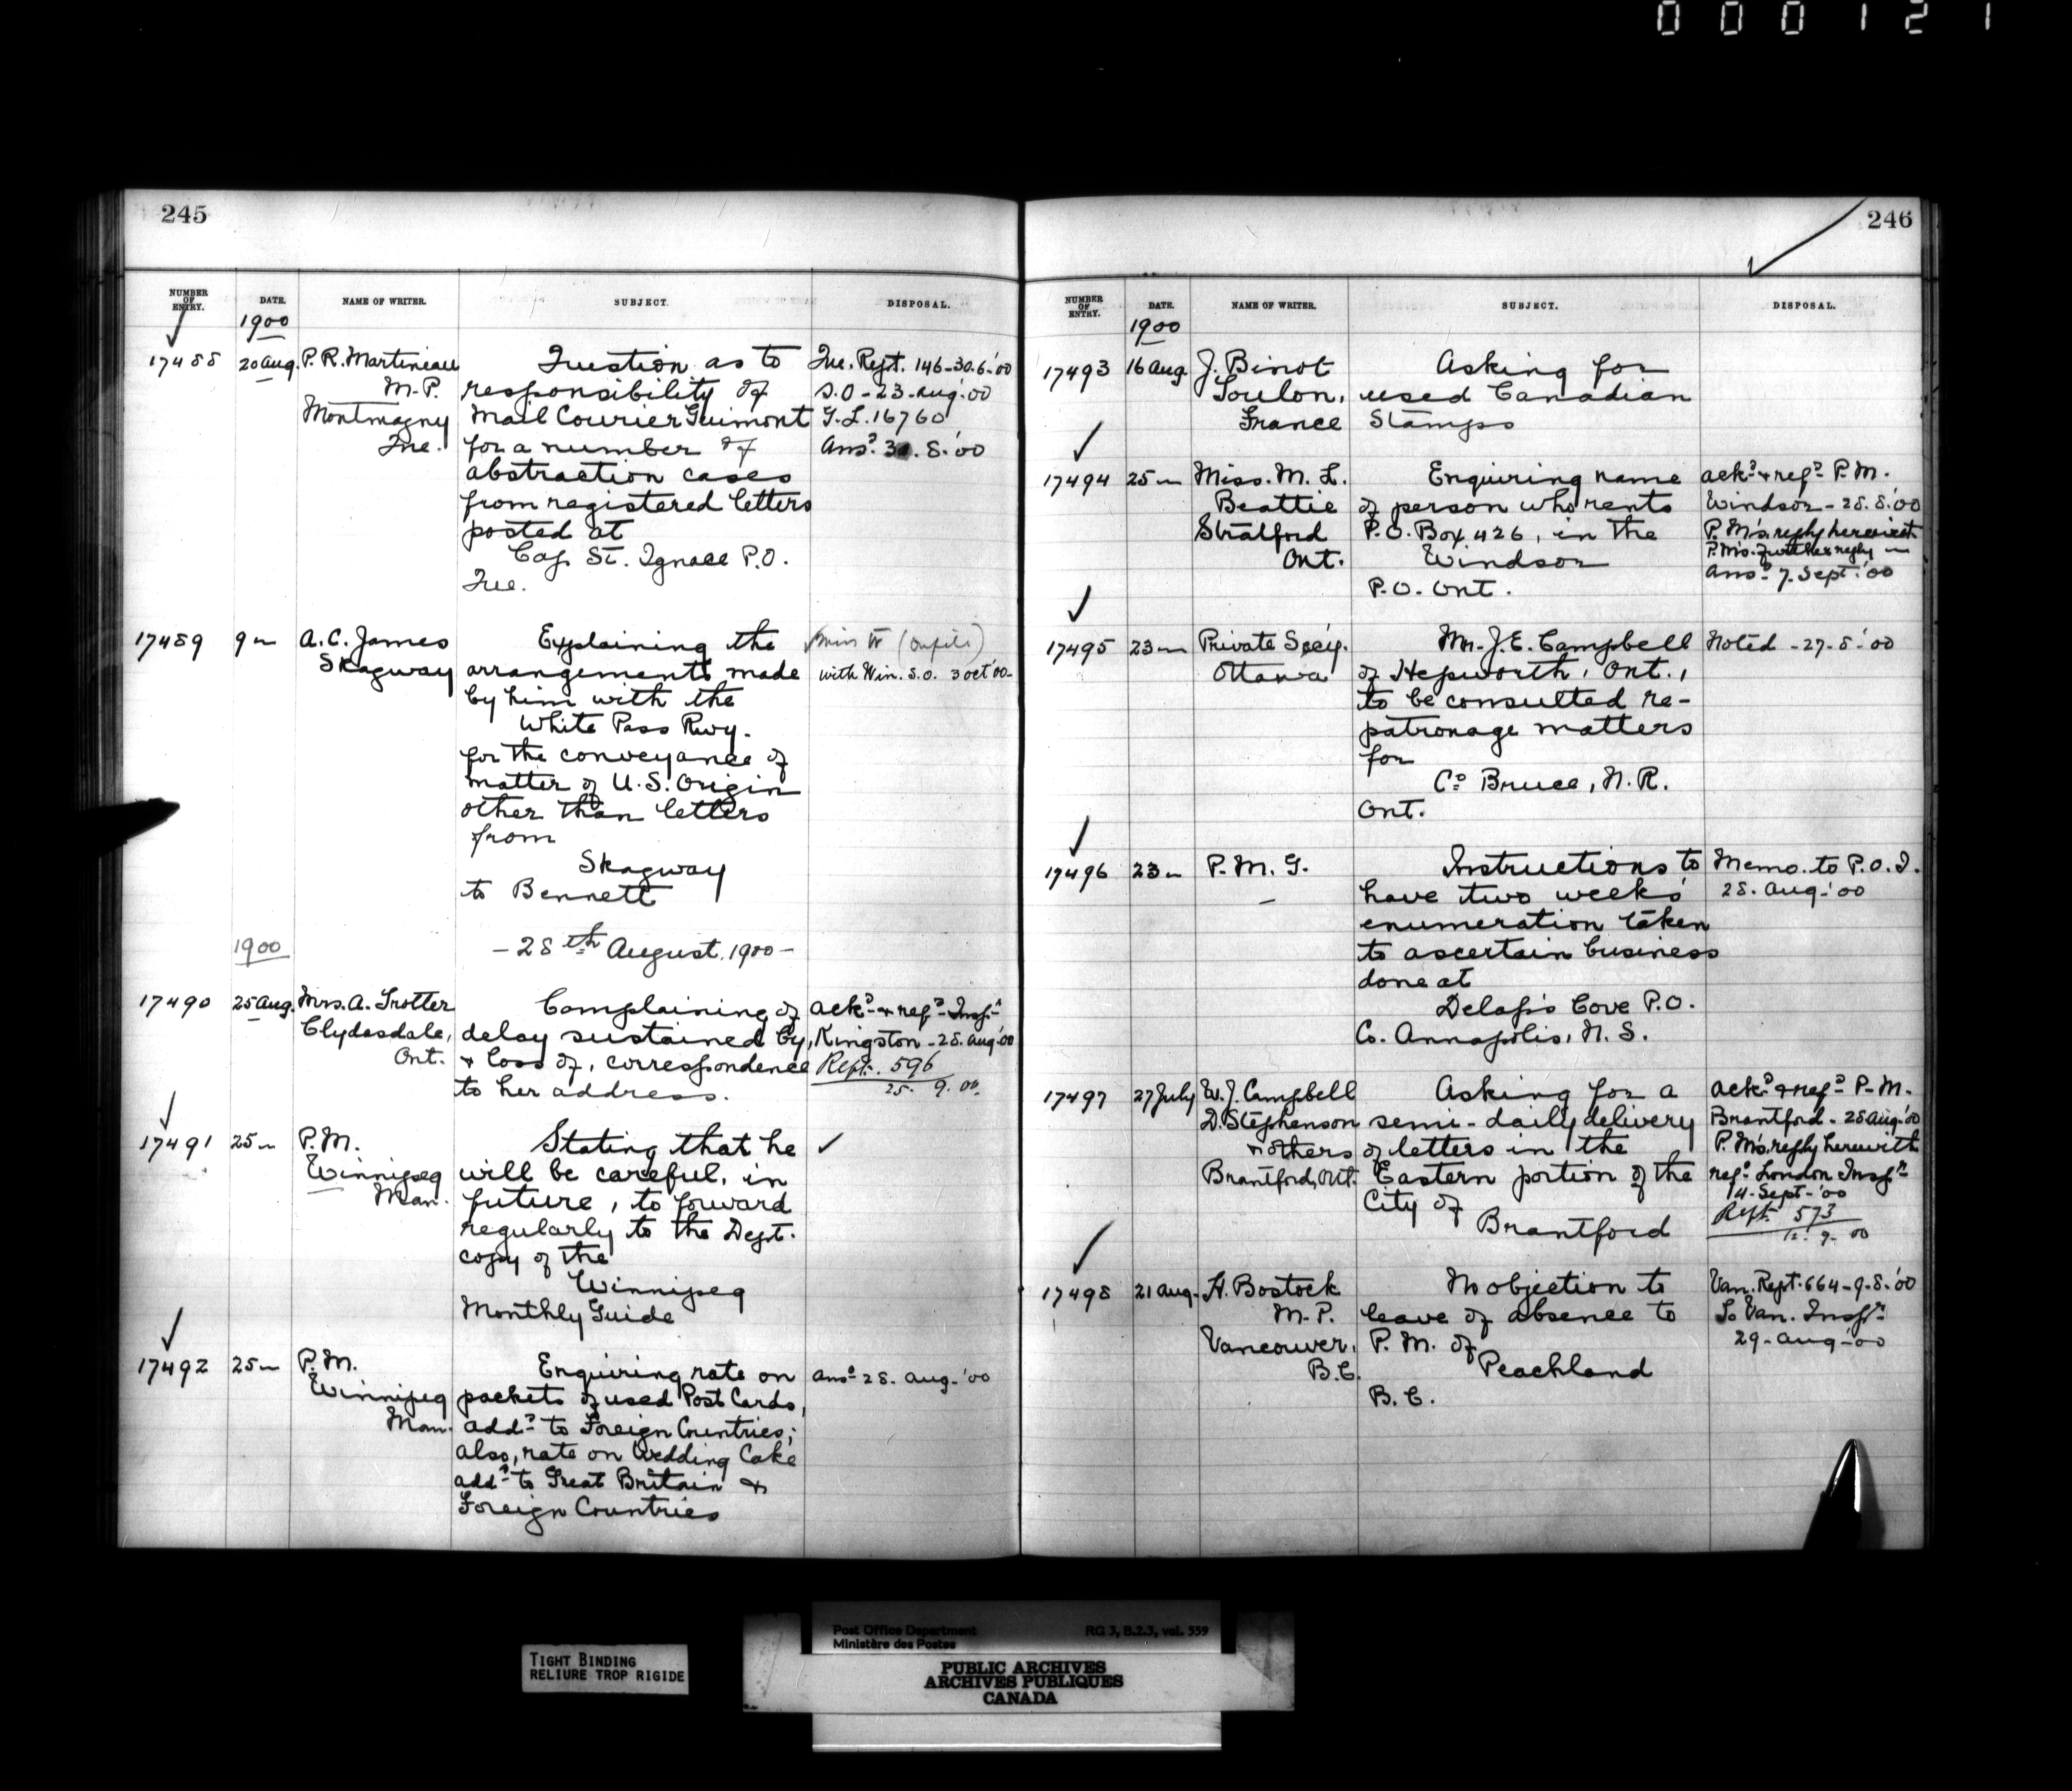 000121
245
NUMBER OF ENTRY.
DATE.
NAME OF WRITER.
SUBJECT.
DISPOSAL.
1900
17488
20 Aug.
P. R. Martineau
M.P.
Montmagny
Que.
Question as to
responsibility of
Mail Courier Guimont
for a number of
abstraction cases
from registered letters
posted at
Cap St. Ignace P.O.
Que.
Que. Rept. 146-30.6-'00
S.O - 23-Aug-'00
G.L. 16760
Ansd. 8.'00
17489
9 "
A. C. James
Skagway
Explaining the
arrangements made
by him with the
White Pass Rwy.
for the conveyance of
matter of U.S. Origin
other than letters
from
Skagway
to Bennett
with Win. S.O. 3 Oct '00-
1900
- 28th August, 1900 -
17490
25 Aug.
Mrs. A. Trotter
Clydesdale,
Ont.
Complaining of
delay sustained by,
& loss of, correspondence
to her address.
Ackd & refd Inspr
Kingston - 28. Aug-'00
Rept. 596
25. 9. 00.
17491
25 "
P.M.
Winnipeg
Man.
Stating that he
will be careful, in
future, to forward
regularly to the Dept.
copy of the
Winnipeg
Monthly Guide
17492
25 "
P.M.
Winnipeg
Man.
Enquiring rate on
packets of used Post Cards,
addd to Foreign Countries;
also, rate on Wedding Cake
addd to Great Britain &
Foreign Countries
Ansd 28. Aug-'00
246
NUMBER OF ENTRY.
DATE.
NAME OF WRITER.
SUBJECT.
DISPOSAL.
1900
17493
16 Aug.
J. Binot
Toulon,
France
Asking for
used Canadian
Stamps
17494
25 "
Miss. M. L.
Beattie
Stratford
Ont.
Enquiring name
of person who rents
P.O. Box 426, in the
Windsor
P.O. Ont.
Ackd & refd P.M.
Windsor - 28.8.'00
P.M's. reply herewith
P.M's. further reply "
Ansd 7. Sept. '00
17495
23 "
Private Secy.
Ottawa
Mr. J. E. Campbell
of Hepworth, Ont.,
to be consulted re-
patronage matters
for
Co. Bruce, N.R.
Ont.
Noted - 27-8-'00
17496
23 "
P. M. G.
-
Instructions to
have two weeks'
enumeration taken
to ascertain business
done at
Delap's Cove P.O.
Co. Annapolis, N.S.
Memo. to P.O.I.
28. Aug-'00
17497
27 July
W. J. Campbell
D. Stephenson
& others
Brantford, Ont.
Asking for a
semi-daily delivery
of letters in the
Eastern portion of the
City of
Brantford
Ackd & refd P.M.
Brantford - 28 Aug-'00
P.M's. reply herewith
refd London Inspr
14-Sept-'00
Rept. 573
12. 9. 00
17498
21 Aug.
H. Bostock
M.P.
Vancouver,
B.C.
No objection to
leave of absence to
P. M. of
Peachland
B.C.
Van. Rept. 664-9-8-'00
To Van. Inspr
29-Aug-'00
TIGHT BINDING
RELIURE TROP RIGIDE
Post Office Department
Ministère des Postes
RG 3, B.2.3, vol. 559
PUBLIC ARCHIVES
ARCHIVES PUBLIQUES
CANADA